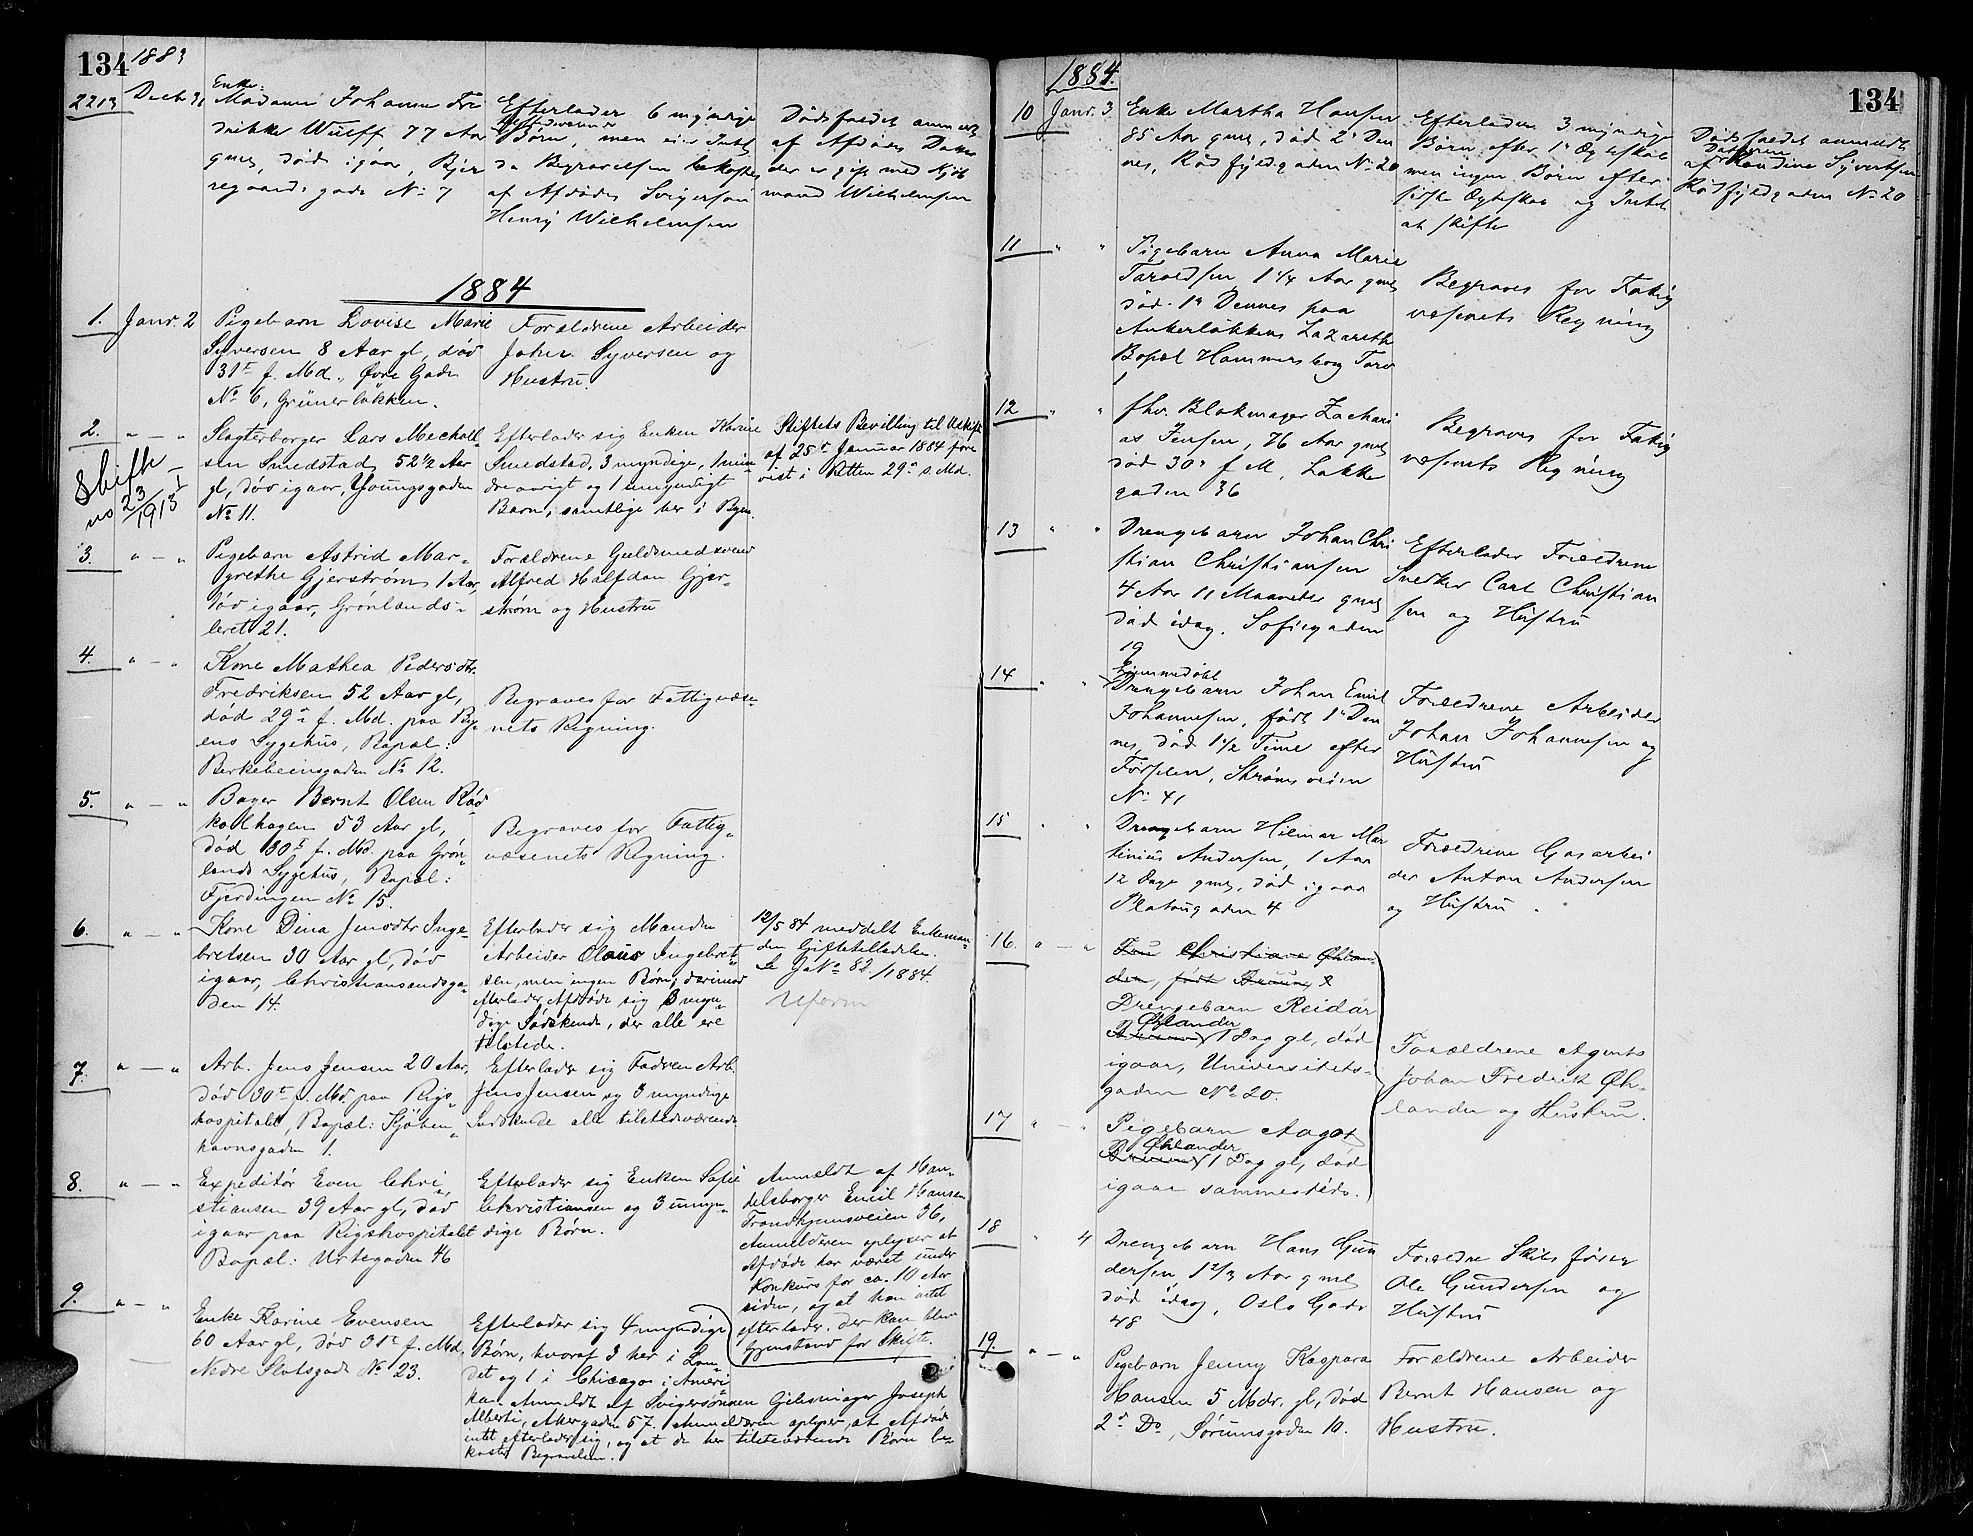 134
1883
2213
Decb 31
Enke:
Madame Johanne Fre
drikke Wulff 77 Aar
gml, død igaar, Bjer
regaards gade No 7
Efterlader 6 myndige
Børn, men eier Intet
da Begravelsen bekostes
af Afdødes Svigersøn
Henry Wilhelmsen
Dødsfaldet anmeldt
af Afdødes Datter
der er gift med Kjøb
mand Wilhelmsen
1884
1. Janr. 2
Pigebarn Lovise Marie
Syversen 8 Aar gl, død
31te f. Md., Øvre Gade
No 6, Grünerløkken.
Forældrene Arbeider
Johan Syversen og
Hustru.
2. " — "
Skifte
23/1 1913
Slagterborger Lars Mechall-
sen Smedstad, 52 1/2 Aar
gl, død igaar, Youngsgaden
No 11.
Efterlader sig Enken Karine
Smedstad, 3 myndige, 1 min
dreaarigt og 1 umyndigt
Barn, samtlige her i Byen.
Stiftets Bevilling til Uskifte
af 25de Januar 1884 fore
vist i Retten 29de s. Md.
3. " — "
Pigebarn Astrid Mar-
grethe Gjerstrøm 1 Aar,
død igaar, Grønlands-
leret 21.
Forældrene Guldsmedsvend
Alfred Halfdan Gjer-
strøm og Hustru
4. " — "
Kone Mathea Pedersdtr.
Fredriksen 52 Aar gl,
død 29de f. Md. paa By-
ens Sygehus, Bopæl:
Berkebeinsgaden No 12.
Begraves for Fattigvæse-
nets Regning.
5. " — "
Bager Bernt Olsen Rød
kolhagen 53 Aar gl,
død 30te f. Md. paa Grøn-
lands Sygehus, Bopæl:
Fjerdingen No 15.
Begraves for Fattig-
væsenets Regning.
6. " — "
Kone Dina Jensdtr Inge-
bretsen 30 Aar gl, død
igaar, Christiansandsga-
den 14.
Efterlader sig Manden
Arbeider Olaus Ingebret-
sen, men ingen Børn; derimod
efterlader Afdøde sig 3 myn-
dige Sødskende, der alle ere
tilstede.
12/5 84 meddelt Enkeman-
den Giftetilladelse.
Se J No 82/1884.
7. " — "
Arb. Jens Jensen 20 Aar,
død 30te f. Md. paa Rigs-
hospitalet, Bopæl: Kjøben-
havnsgaden 1.
Efterlader sig Fadren Arb.
Jens Jensen og 3 myndige
Sødskende alle tilstedeværende
8. " — "
Expeditør Even Chri-
stiansen 39 Aar gl, død
igaar paa Rigshospitalet
Bopæl: Urtegaden 46
Efterlader sig Enken Sofie
Christiansen og 3 umyn-
dige Børn.
Anmeldt af Han-
delsborger Emil Hansen
Trondhjemsveien 36,
Anmelderen oplyser at
Afdøde har været under
Konkurs for ca. 10 Aar
siden, og at han intet
efterlader, der kan blive
Gjenstand for Skifte.
9. " — "
Enke Karine Evensen
60 Aar gl, død 31te f. Md.
Nedre Slotsgade No 23.
Efterlader sig 4 myndige
Børn, hvoraf 3 her i Lan-
det og 1 i Chicago i Ameri
ka. Anmeldt af Svigersønnen Gibsmager Joseph
Alberti, Akersgaden 57. Anmelderen oplyser, at Afdøde
intet efterlader sig, og at de her tilstedeværende Børn be-
koster Begravelsen.
134
1884.
10 Janr. 3
Enke Martha Hansen
85 Aar gml, død 2de Den
nes, Rødfyldgaden No 20
Efterlader 3 myndige
Børn efter 1ste Ægteskab
men ingen Børn efter
sidste Ægteskab og Intet
at skifte
Dødsfaldet anmeldt
af Datteren Randine Syvertsen
Rødfyldgaden No 20
11 " "
Pigebarn Anna Marie
Taraldsen 1 1/4 Aar gml
død 1ste Dennes paa
Ankerløkkens Lazareth
Bopæl Hammersborg Torv
1
Begraves for Fattig
væsenets Regning
12 " "
fhv. Blokmager Zachari
as Jensen, 76 Aar gml
død 30te f M, Lakke
gaden 36
Begraves for Fattig
væsenets Regning
13 " "
Drengebarn Johan Chri
stian Christiansen
4 Aar 11 Maaneder gml
død idag, Sofiegaden
19
Efterlader Forældrene
Snedker Carl Christian
sen og Hustru
14 " "
Hjemmedøbt
Drengebarn Johan Emil
Johannesen, født 1ste Den
nes, død 1 1/2 Time efter
Fødselen, Strømsveien
No 41
Forældrene Arbeider
Johan Johannesen og
Hustru
15 " "
Drengebarn Hilmar Mar
tinius Andersen, 1 Aar
12 Dage gml, død igaar
Platougaden 4
Forældrene Gasarbei
der Anton Andersen
og Hustru.
16. " — "
Fru Christiane Øhlan-
der, født Bruun, &
Drengebarn Reidar
Øhlander
Bruun, 1 Dag gl, død
igaar, Universitets-
gaden No 20.
Forældrene Agent
Johan Fredrik Øh-
lander og Hustru.
17 " — "
Pigebarn Aagot
Øhlander
Bruun, 1 Dag gl, død
igaar sammesteds.
18 " 4
Drengebarn Hans Gun
dersen, 1 2/3 Aar gml
død idag, Oslo Gade
48
Forældre Skibsfører
Ole Gundersen og
Hustru
19. " — "
Pigebarn Jenny Kaspara
Hansen 5 Mdr. gl, død
2de Ds, Sørumsgaden 10.
Forældrene Arbeider
Bernt Hansen og
Hustru.